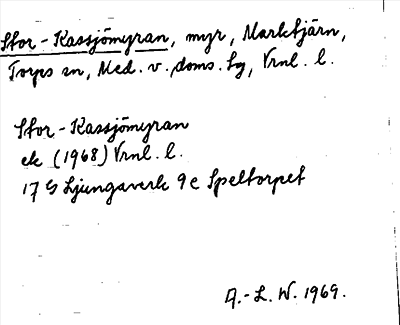 Stor-Kassjömyran, myr, Marktjärn,
Torps sn, Med. v. doms. sg, Vrnl. l.
Stor-Kassjömyran
ek (1968) Vrnl. l.
17 G Ljungaverk 9 c Speltorpet
A.-L. W. 1969.